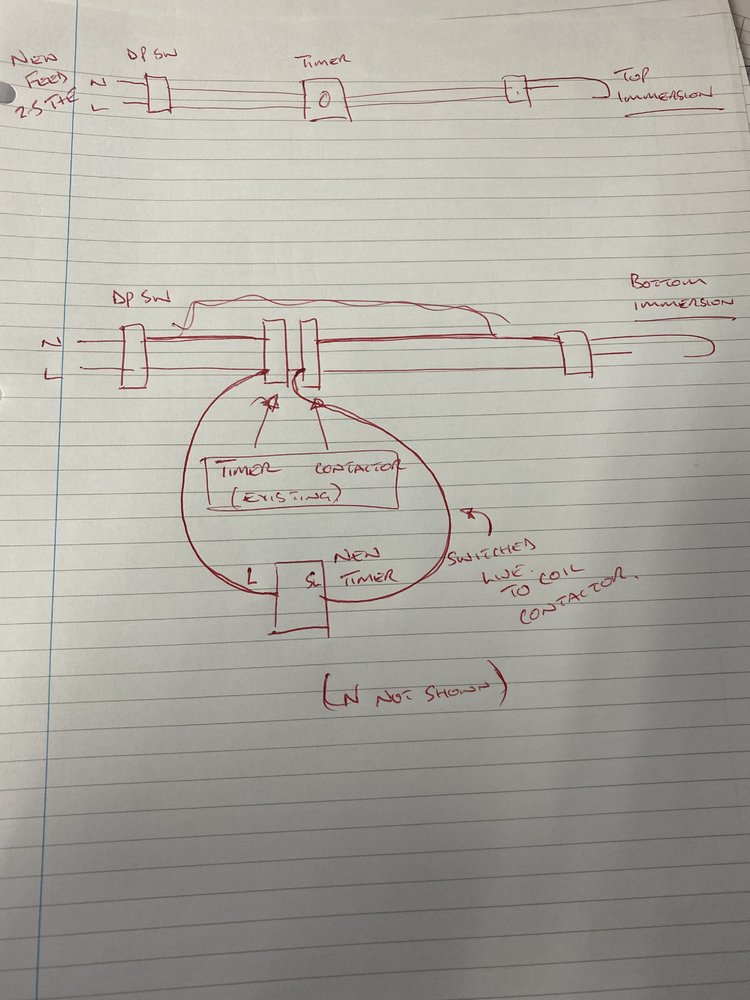 NEW
FEED
2.5 T+E
DP SW
TIMER
N
L
TOP
IMMERSION
DP SW
BOTTOM
IMMERSION
N
L
TIMER CONTACTOR
(EXISTING)
NEW
TIMER
L
SL
SWITCHED
LIVE.
TO COIL
CONTACTOR.
(N NOT SHOWN)